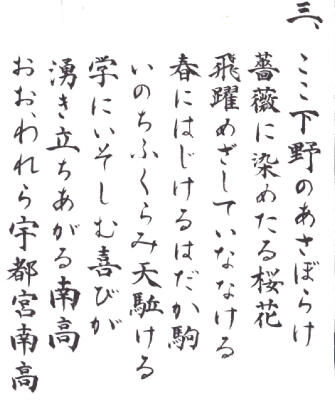 三、
ここ下野のあさぼらけ
薔薇に染めたる桜花
飛躍めざしていななける
春にはじけるはだか駒
いのちふくらみ天駈ける
学にいそしむ喜びが
湧き立ちあがる南高
おお、われら宇都宮南高